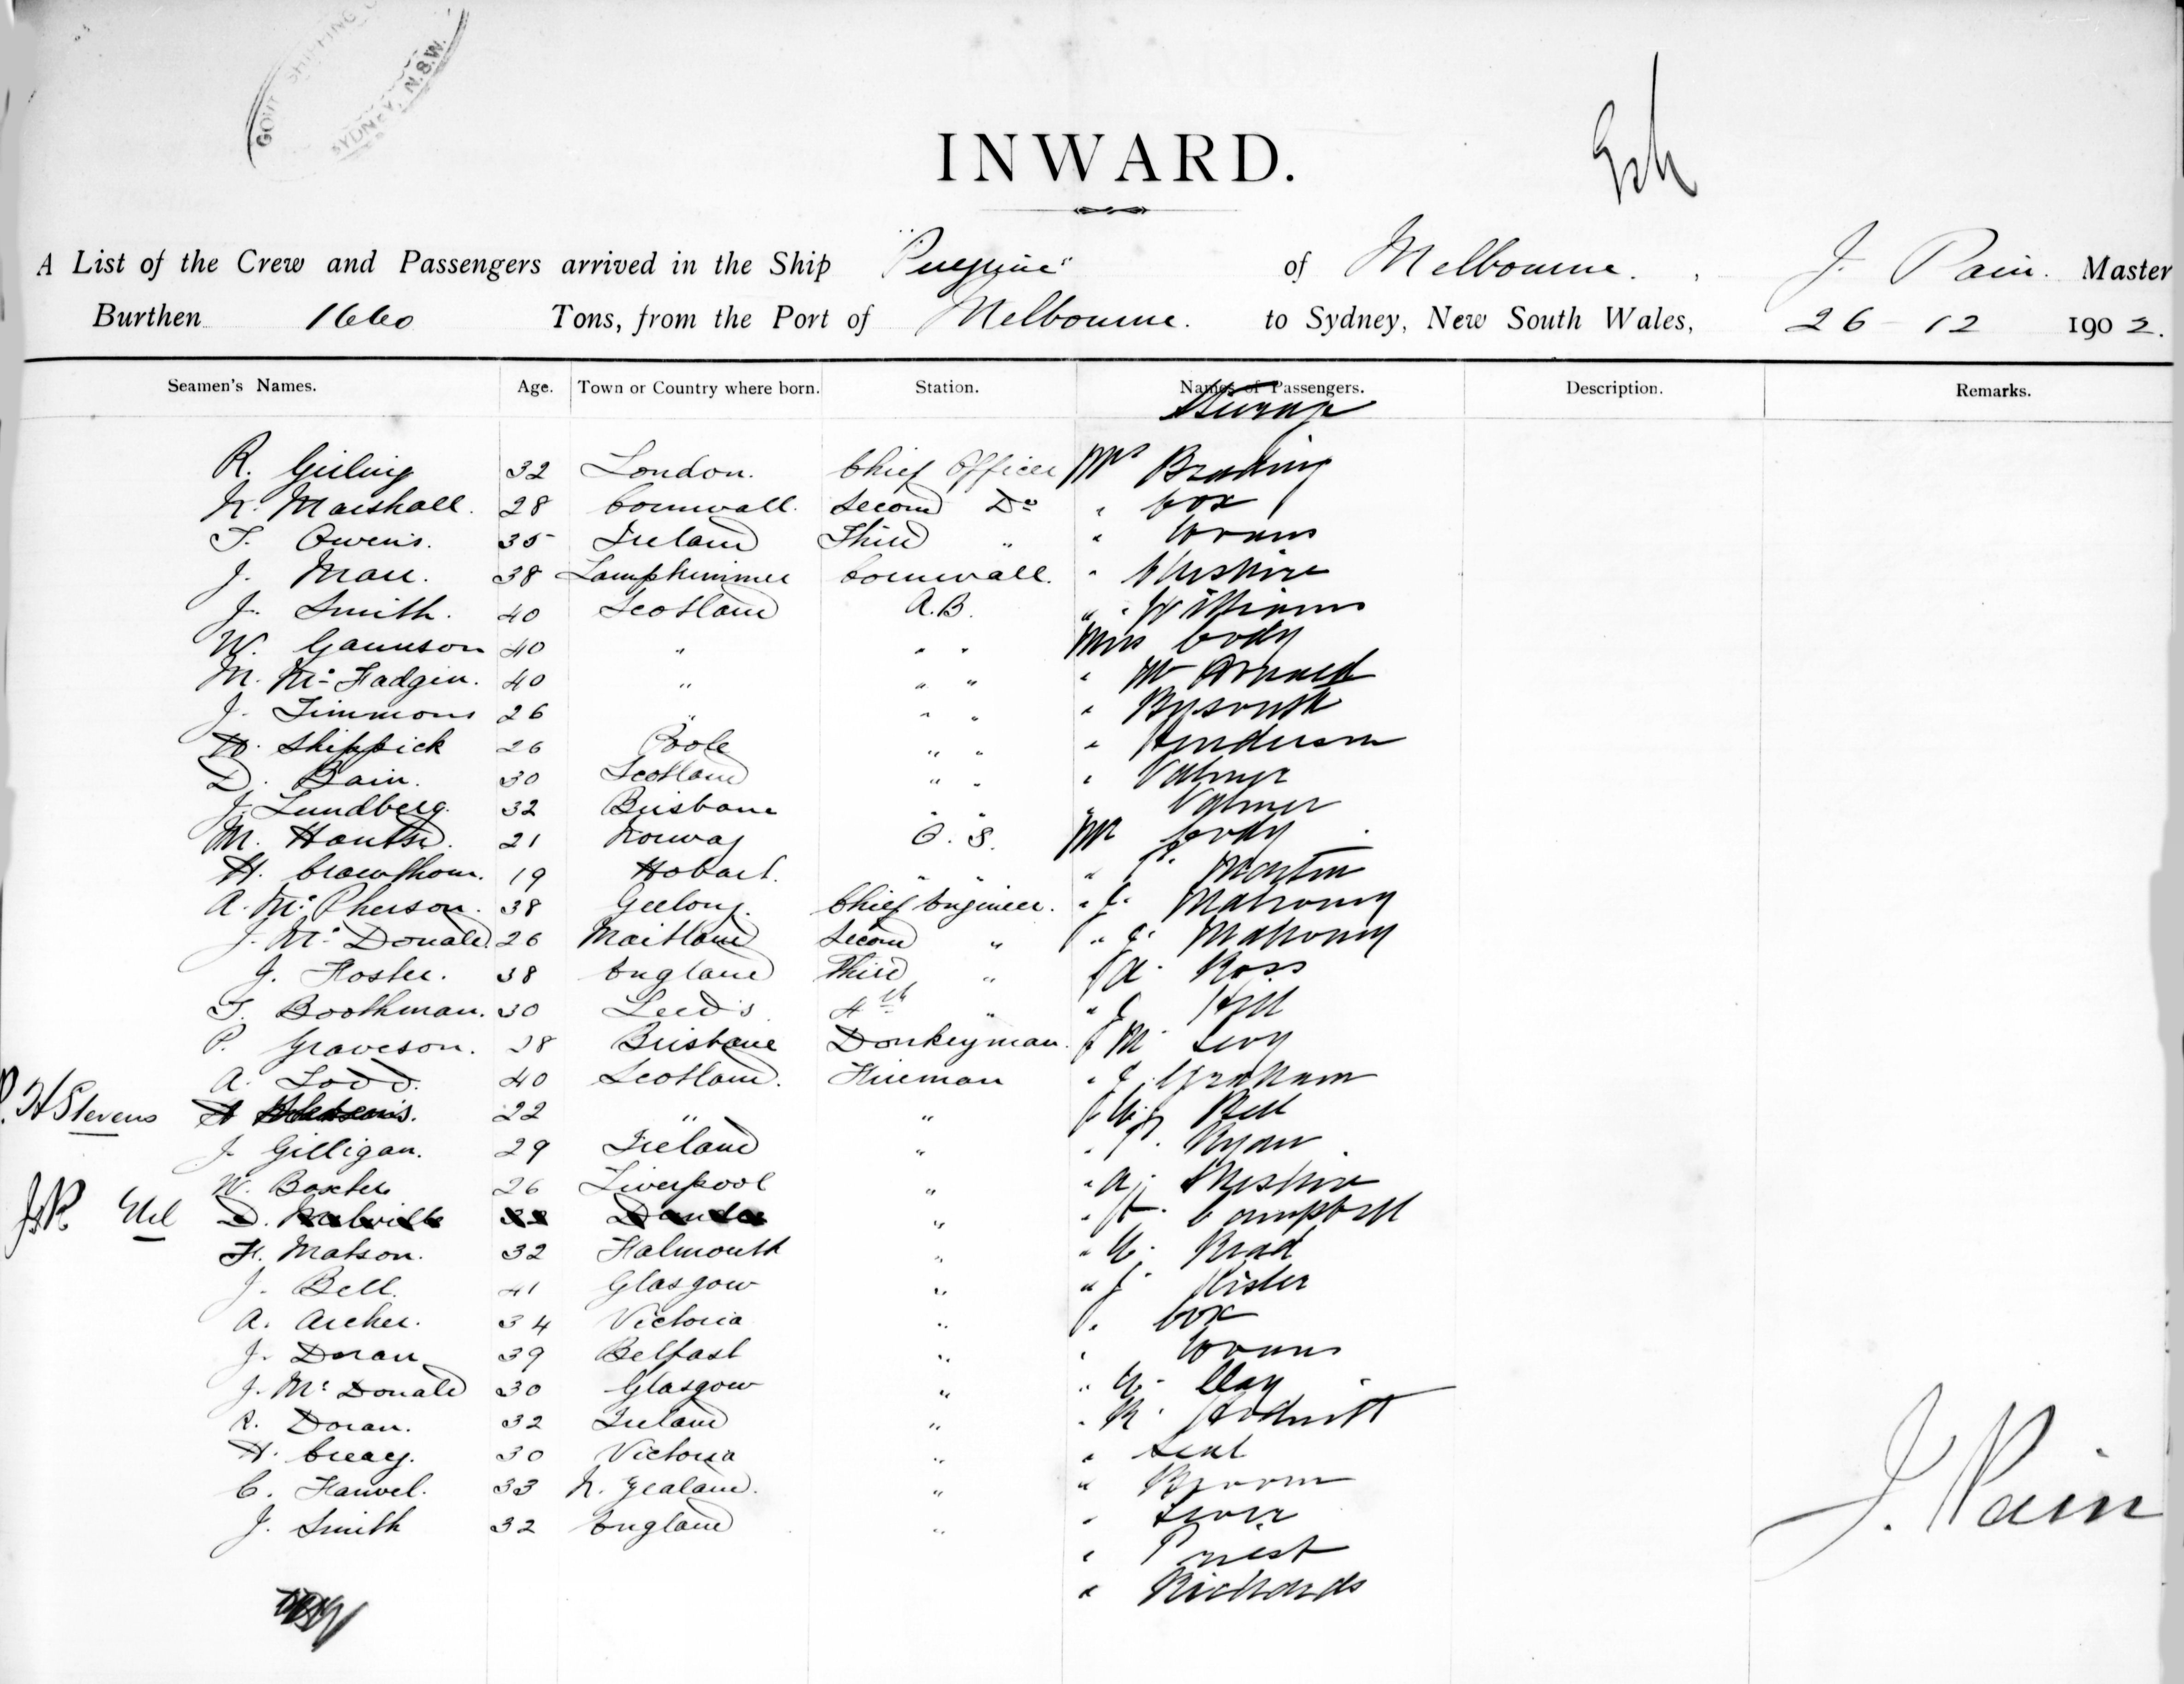 GOVT SHIPPING O
SYDNEY, N.S.W.
INWARD.
A List of the Crew and Passengers arrived in the Ship "Peregrine" of Melbourne. , J. Pain. Master
Burthen 1660 Tons, from the Port of Melbourne. to Sydney, New South Wales, 26 - 12 1902.
Seamen's Names. Age. Town or Country where born. Station. Names of Passengers. Description. Remarks.
Steerage
R. Girling 32 London. Chief Officer Mrs Brading
N. Marshall. 28 Cornwall. Second Do " Cox
T. Owens. 35 Ireland Third " " Evans
J. Marr. 38 Lamptrimmer Cornwall. " Cheshire
J. Smith. 40 Scotland A.B. " Williams
W. Gaunson 40 " " " Miss Cody
M. McFadgen. 40 " " " "
J. Timmons 26 " " " "
W. Shippick 26 Poole " " " Henderson
D. Bain. 30 Scotland " " " Palmer
J. Lundberg. 32 Brisbane " " " Palmer
M. 21 Norway O.S. Mr Cody
H. Crawthorn. 19 Hobart. " " " Martin
A. McPherson. 38 Geelong. Chief Engineer. " Mahony
J. McDonald 26 Maitland Second " " Mahony
J. Foster. 38 England Third " " A. Ross
T. Boothman. 30 Leeds 4th " " Hill
P. Graveson. 28 Brisbane Donkeyman. " M. Levy
A. Todd. 40 Scotland. Fireman " Graham
H Stevens 22 " " " Bell
J. Gilligan. 29 Ireland " " Ryan
W. Baxter 26 Liverpool " " A. Cheshire
D. Melville " " Campbell
F. Matson. 32 Falmouth " " Read
J. Bell. 41 Glasgow " " J. Lister
A. Archer. 34 Victoria " " Cox
J. Doran 39 Belfast " " Evans
J. McDonald 30 Glasgow " " Clay
R. Doran. 32 Ireland " " R.
H. Creag. 30 Victoria " "
C. 33 N. Zealand. " " Broom
J. Smith 32 England " "
" Priest
" Richards
J. Pain